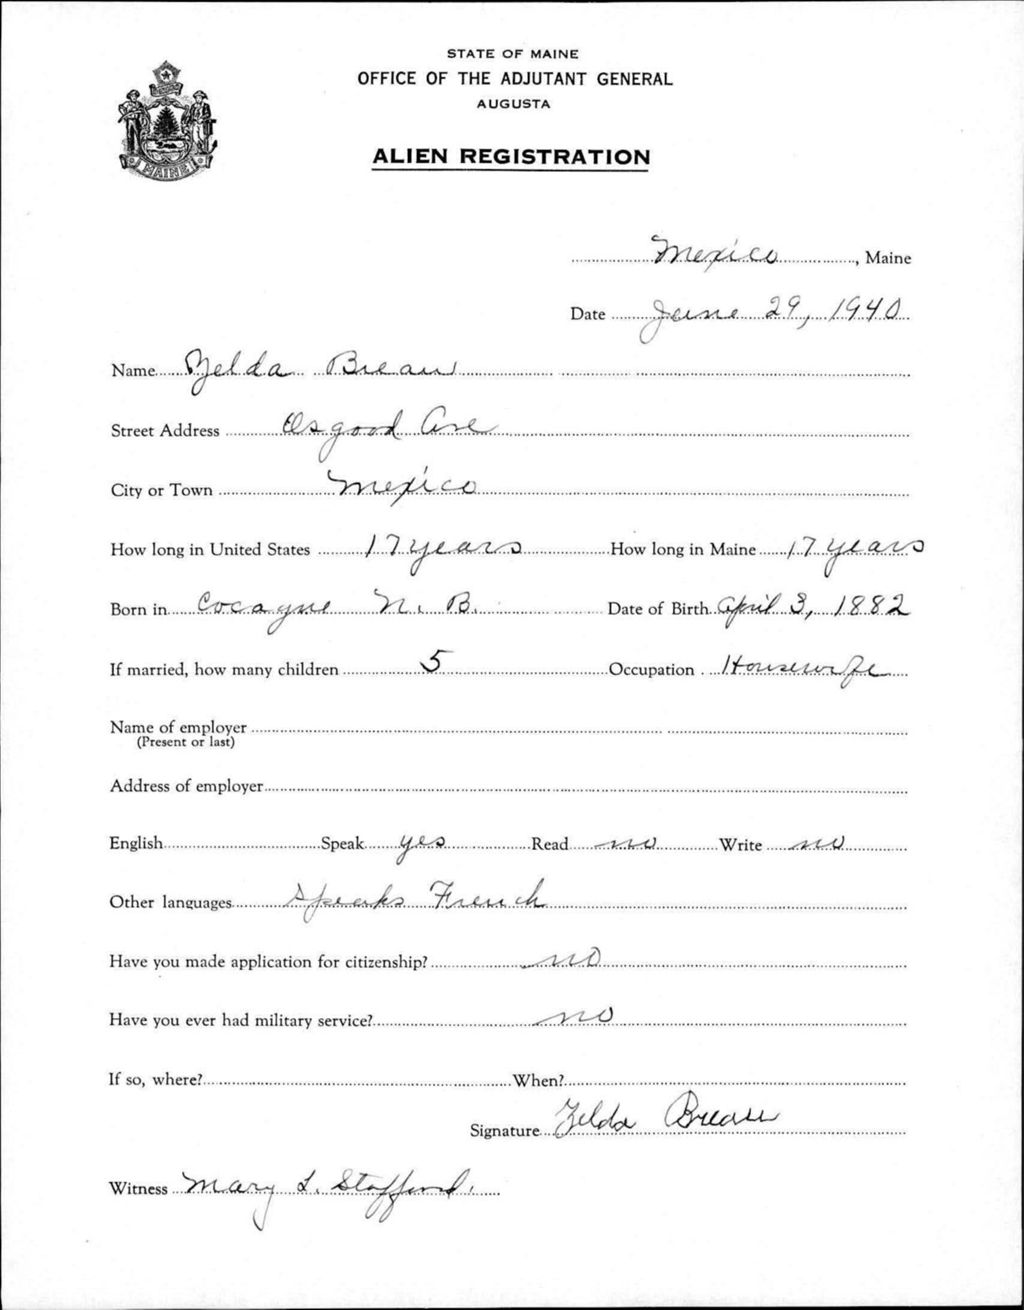 STATE OF MAINE
OFFICE OF THE ADJUTANT GENERAL
AUGUSTA
ALIEN REGISTRATION
MAINE
Mexico, Maine
Date June 29, 1940
Name Zelda Breau
Street Address Osgood Ave
City or Town Mexico
How long in United States 17 years How long in Maine 17 years
Born in Cocagne N. B. Date of Birth April 3, 1882
If married, how many children 5 Occupation Housewife
Name of employer
(Present or last)
Address of employer
English Speak yes Read no Write no
Other languages Speaks French
Have you made application for citizenship? no
Have you ever had military service? no
If so, where? When?
Signature Zelda Breau
Witness Mary L. Stafford.